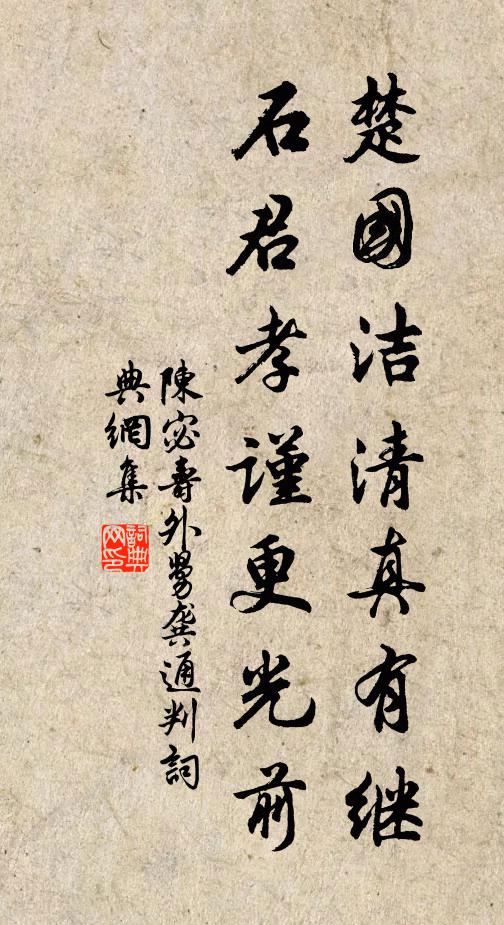 楚國洁清真有继
石君孝谨更光前
陳宓壽外舅龔通判詞
典網集
詞典網印